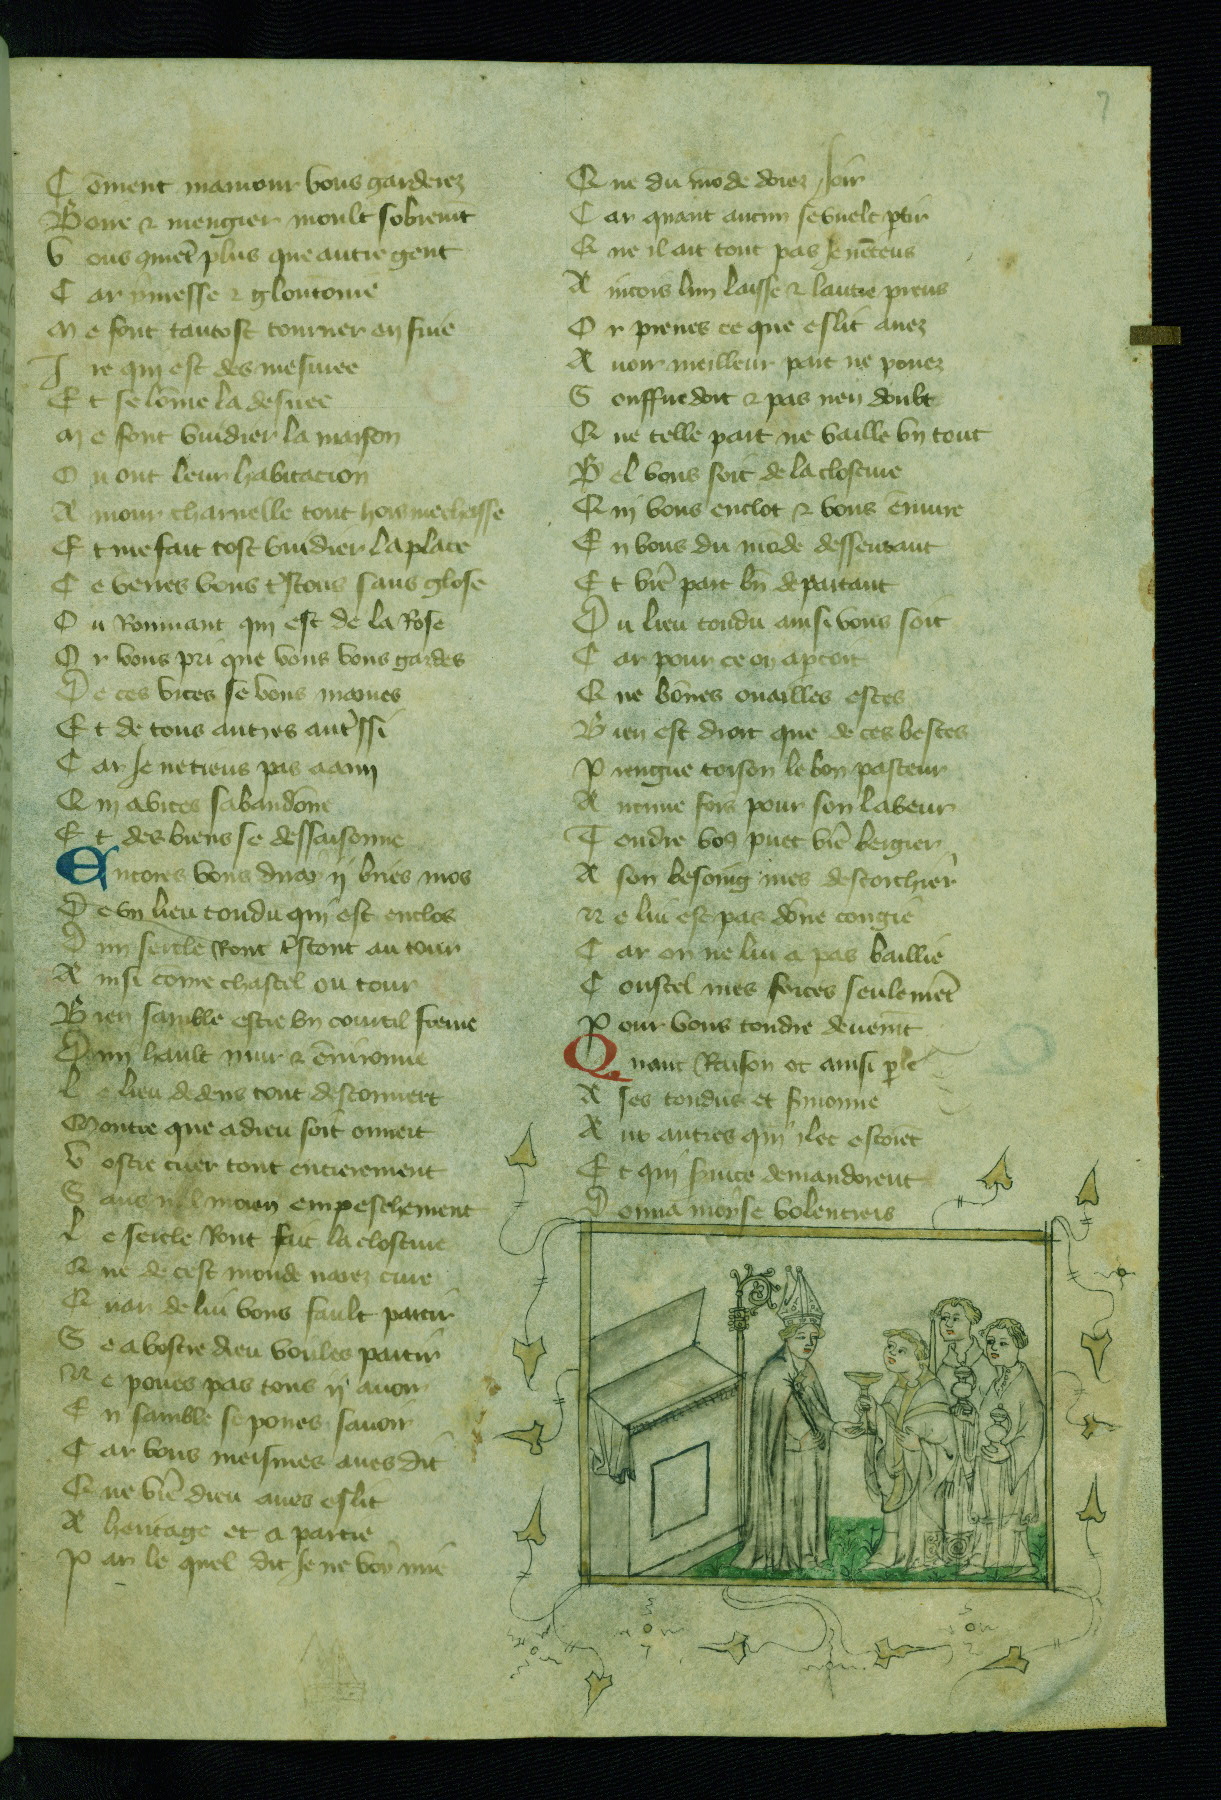 7
Cōment mamour vous garderez
Boire & mengier moult sobremt
Vous 9met plus que autre gent
Car yuresse & gloutonie
Me font tantost tourner en fuie
Ire qui est desmesuree
Et se lōme la desuee
Me font vuidier la maison
Ou ont leur habitacion
Amour charnelle tout hors me chasse
Et me fait tost vuidier la place
Ce verres vous trestous sans glose
Ou Rommant qui est de la Rose
Or vous pri que vous vous gardes
De ces vices se vous mames
Et de tous autres autressi
Car Je ne tieng pas a ami
Qui a vices sabandōne
Et des biens se dessaisonne
Encores vous diray ij briés mos
De vn lieu tondu qui est enclos
Dun sercle Ront trestout au tour
Ainsi come chastel ou tour
Bien samble estre vn courtil ferme
Dun hault mur & enuironne
Le lieu dedens tout descouuert
Montre que a dieu soit ouuert
Vostre cuer tout entierement
Sans nul moien empeschement
Le sercle Ront fait la closture
Que de cest monde naiez cure
Quar de lui vous fault partir
Se a vostre dieu voules partir
Ne poues pas tous ij auoir
En samble se poues sauoir
Car vous meismes aues dit
Que vre dieu aues eslit
A heritage et a partie
Par le quel dit Je ne voy mie
Que du mōde doiez Joir
Car quant aucun se vuelt ptir
Que il ait tout pas Je nētens
Aincois lun laisse & lautre prens
Or prenes ce que eslit auez
Auoir meilleur part ne pouez
Souffire doit & pas nen doubt
Que telle part ne vaille vn tout
Bel vous soit de la closture
Qui vous enclot & vous ēmure
En vous du mōde desseurant
Et vre part bn departant
Du lieu tondu ainsi vous soit
Car pour ce on apcoit
Que bōnes ouailles estes
Bien est droit que de ces bestes
Prengne toison le bon pasteur
Aucune fois pour son labeur
Tondre vo9 puet vre bergier
A son besoing mes descorchier
Ne lui est pas dōne congie
Car on ne lui a pas baillie
Coustel mes forces seulemēt
Pour vous tondre deuemt
Quant Raison ot ainsi ple
A ses tondus et sermonne
Aut autres qui ilec estoiēt
Et qui grace demandoient
Donna moyse volentiers